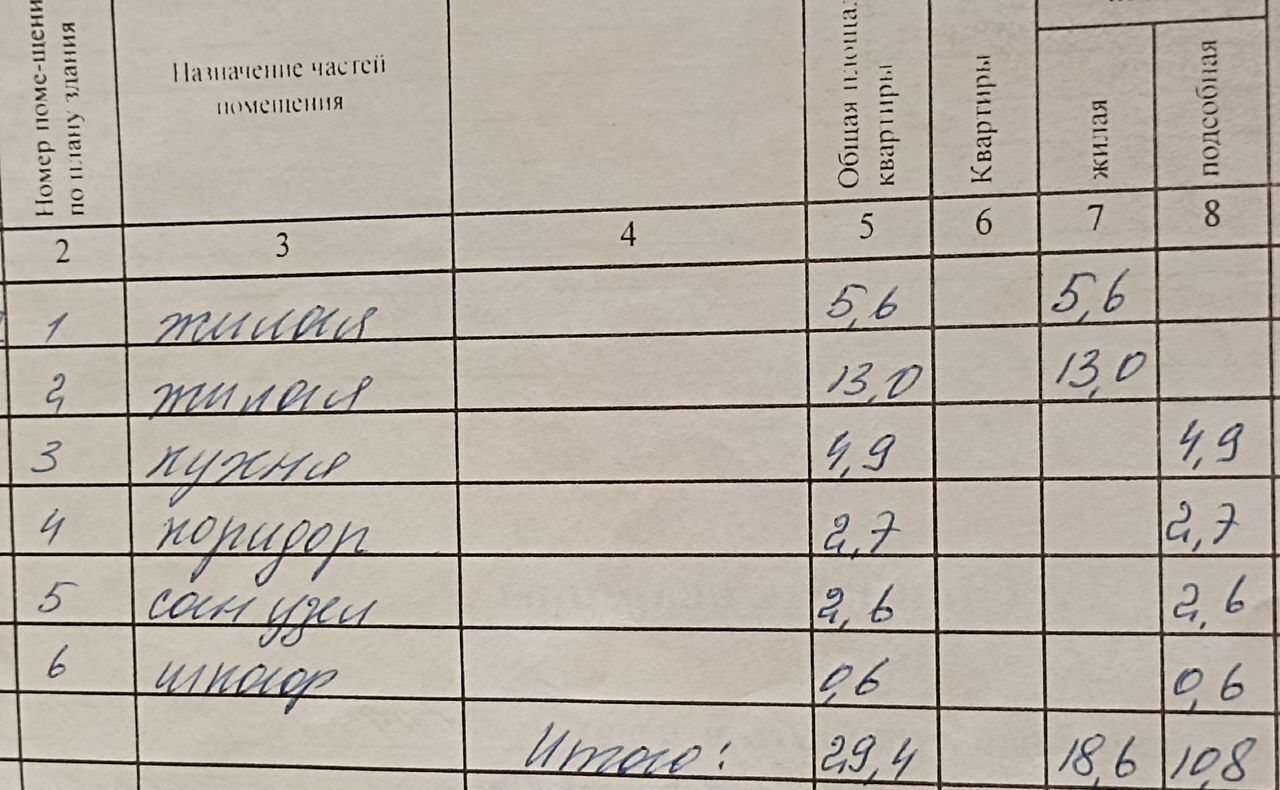 Номер поме-щени
по плану здания
Назначение частей
помещения
Общая площа
квартиры
Квартиры
жилая
подсобная
2 3 4 5 6 7 8
1 жилая 5,6 5,6
2 жилая 13,0 13,0
3 кухня 4,9 4,9
4 коридор 2,7 2,7
5 сан узел 2,6 2,6
6 шкаф 0,6 0,6
Итого: 29,4 18,6 10,8